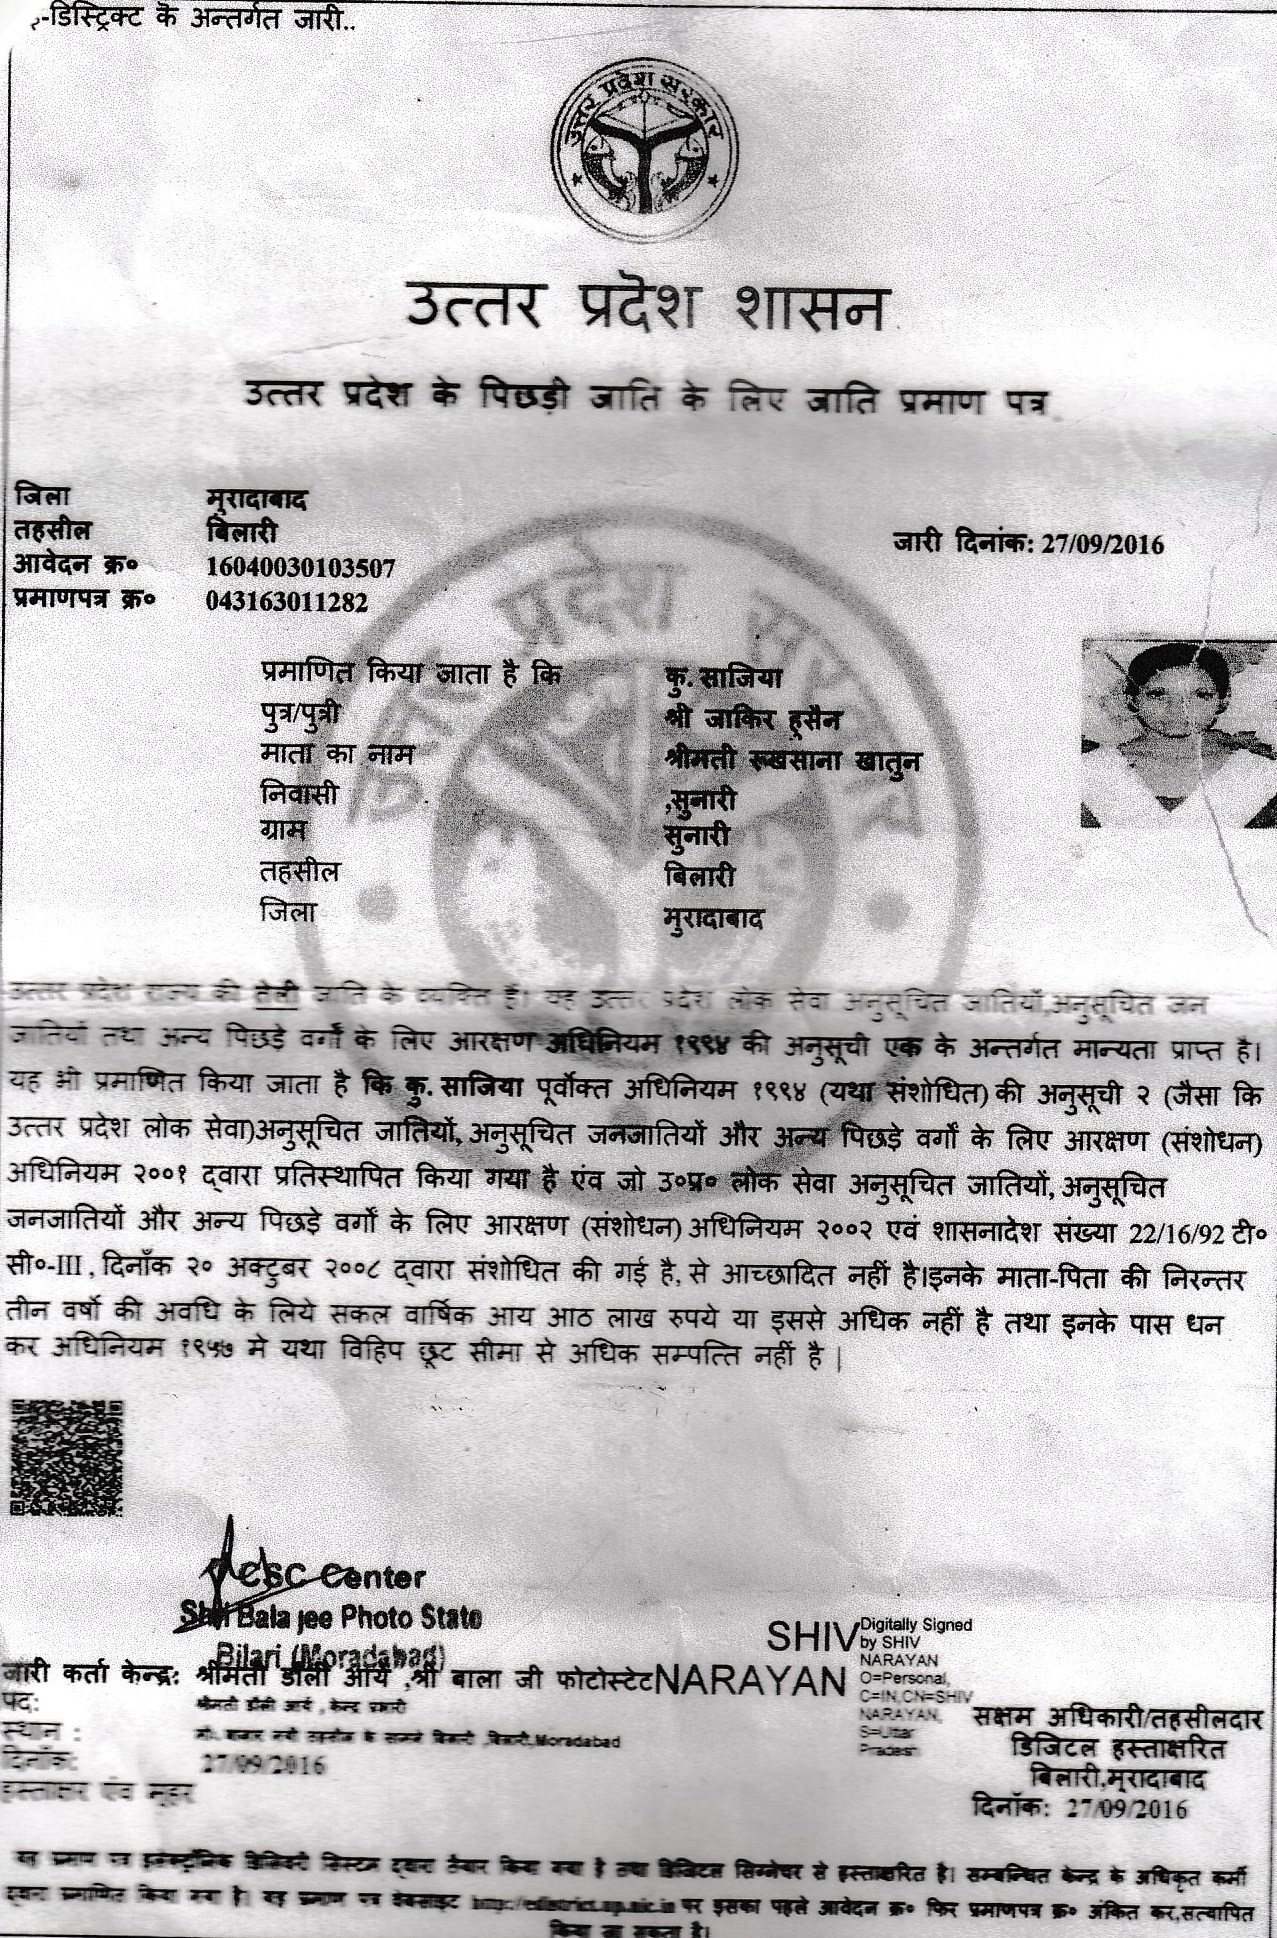 -डिस्ट्रिक्ट के अन्तर्गत जारी..
उत्तर प्रदेश सरकार
उत्तर प्रदेश शासन
उत्तर प्रदेश के पिछड़ी जाति के लिए जाति प्रमाण पत्र
जिला मुरादाबाद
तहसील बिलारी
जारी दिनांक: 27/09/2016
आवेदन क्र० 16040030103507
प्रमाणपत्र क्र० 043163011282
प्रमाणित किया जाता है कि कु. साजिया
पुत्र/पुत्री श्री जाकिर हूसैन
माता का नाम श्रीमती रुखसाना खातुन
निवासी ,सुनारी
ग्राम सुनारी
तहसील बिलारी
जिला मुरादाबाद
उत्तर प्रदेश राज्य की तेली जाति के व्यक्ति हैं। यह उत्तर प्रदेश लोक सेवा अनुसूचित जातियों,अनुसूचित जन
जातियों तथा अन्य पिछड़े वर्गों के लिए आरक्षण अधिनियम १९९४ की अनुसूची एक के अन्तर्गत मान्यता प्राप्त है।
यह भी प्रमाणित किया जाता है कि कु. साजिया पूर्वोक्त अधिनियम १९९४ (यथा संशोधित) की अनुसूची २ (जैसा कि
उत्तर प्रदेश लोक सेवा)अनुसूचित जातियों, अनुसूचित जनजातियों और अन्य पिछड़े वर्गों के लिए आरक्षण (संशोधन)
अधिनियम २००१ द्वारा प्रतिस्थापित किया गया है एंव जो उ०प्र० लोक सेवा अनुसूचित जातियों, अनुसूचित
जनजातियों और अन्य पिछड़े वर्गों के लिए आरक्षण (संशोधन) अधिनियम २००२ एवं शासनादेश संख्या 22/16/92 टी०
सी०-III , दिनाँक २० अक्टुबर २००८ द्वारा संशोधित की गई है, से आच्छादित नहीं है।इनके माता-पिता की निरन्तर
तीन वर्षो की अवधि के लिये सकल वार्षिक आय आठ लाख रुपये या इससे अधिक नहीं है तथा इनके पास धन
कर अधिनियम १९५७ मे यथा विहिप छूट सीमा से अधिक सम्पत्ति नहीं है |
CSC Center
Shri Bala jee Photo State
Bilari (Moradabad)
SHIV NARAYAN
Digitally Signed
by SHIV
NARAYAN
O=Personal,
C=IN,CN=SHIV
NARAYAN,
S=Uttar
Pradesh
जारी कर्ता केन्द्र: श्रीमती डॉली आर्य ,श्री बाला जी फोटोस्टेट
पद: श्रीमती डॉली आर्य , केन्द्र प्रभारी
स्थान : के सामने बिलारी ,बिलारी,Moradabad
दिनाँक: 27/09/2016
हस्ताक्षर एंव मूहर
सक्षम अधिकारी/तहसीलदार
डिजिटल हस्ताक्षरित
बिलारी,मुरादाबाद
दिनाँक: 27/09/2016
यह प्रमाण पत्र इलेक्ट्रॉनिक डिलिवरी सिस्टम द्वारा तैयार किया गया है तथा डिजिटल सिग्नेचर से हस्ताक्षरित है। सम्बन्धित केन्द्र के अधिकृत कर्मी
द्वारा प्रमाणित किया गया है। यह प्रमाण पत्र वेबसाइट http://edistrict.up.nic.in पर इसका पहले आवेदन क्र० फिर प्रमाणपत्र क्र० अंकित कर,सत्यापित
किया जा सकता है।